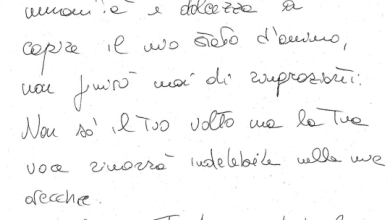 umanità e dolcezza a
capire il mio stato d'animo,
non finirò mai di ringraziarti.
Non sò il Tuo volto ma la Tua
voce rimarrà indelebile nelle mie
orecchie.